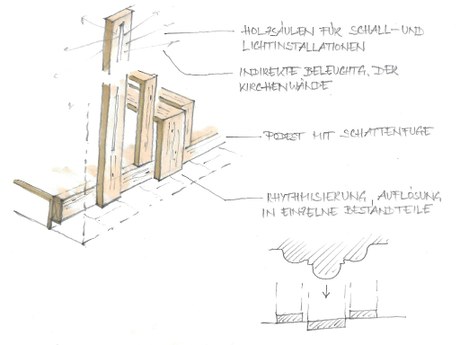 HOLZSÄULEN FÜR SCHALL- UND
LICHTINSTALLATIONEN
INDIREKTE BELEUCHTG. DER
KIRCHENWÄNDE
PODEST MIT SCHATTENFUGE
RHYTHMISIERUNG, AUFLÖSUNG
IN EINZELNE BESTANDTEILE